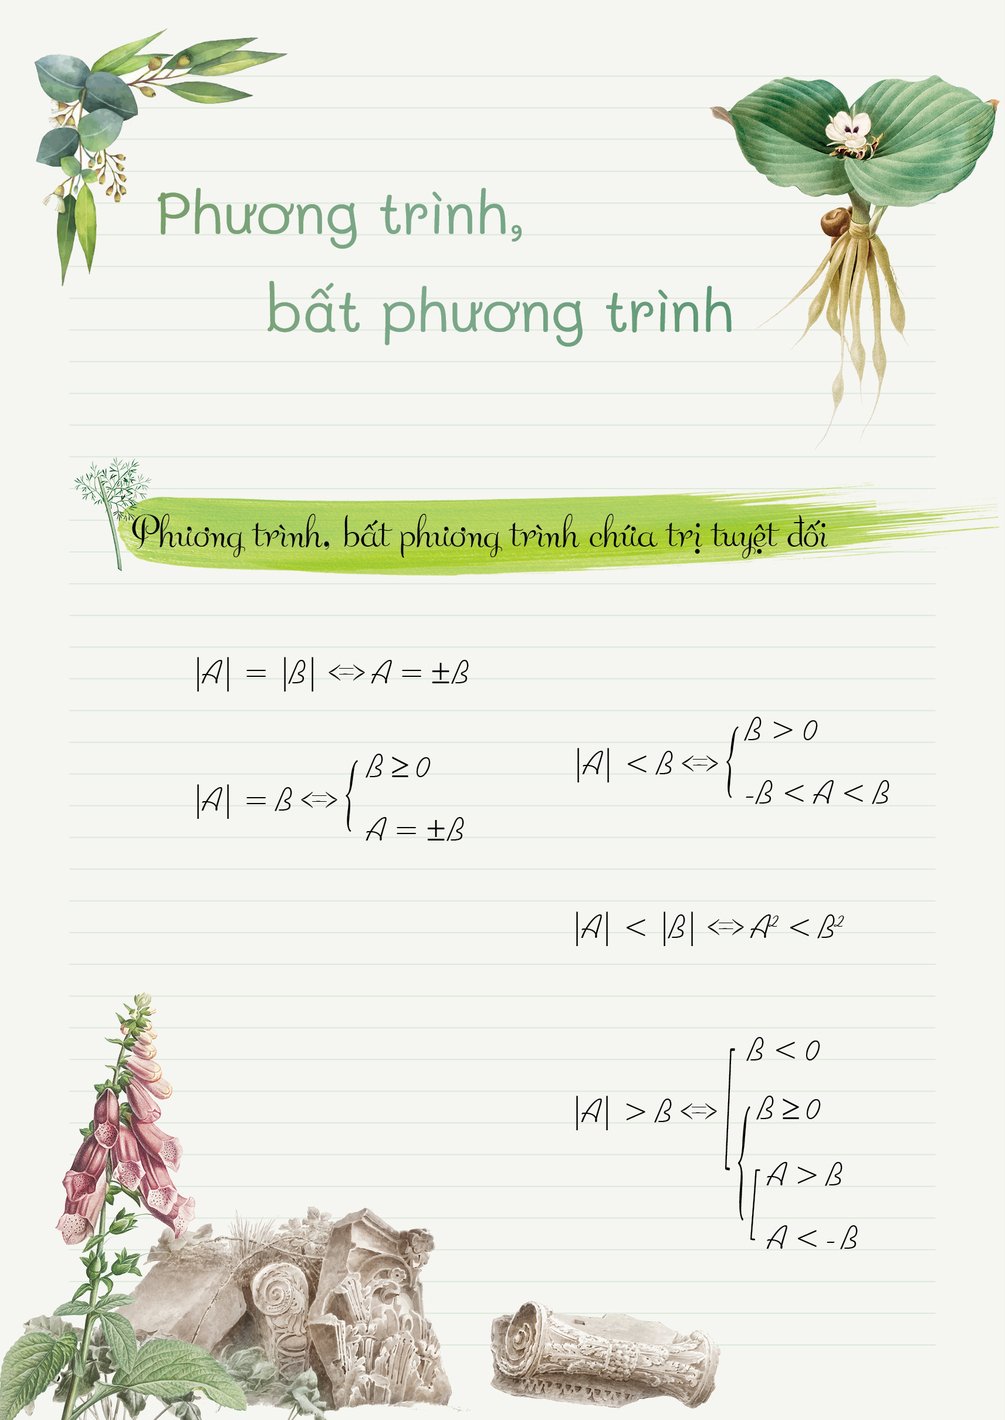 Phương trình,
bất phương trình
Phương trình, bất phương trình chứa trị tuyệt đối
|A| = |B| <=> A = ±B
|A| = B <=> { B ≥ 0
A = ±B
|A| < B <=> { B > 0
-B < A < B
|A| < |B| <=> A² < B²
|A| > B <=> [ B < 0
{ B ≥ 0
[ A > B
A < -B